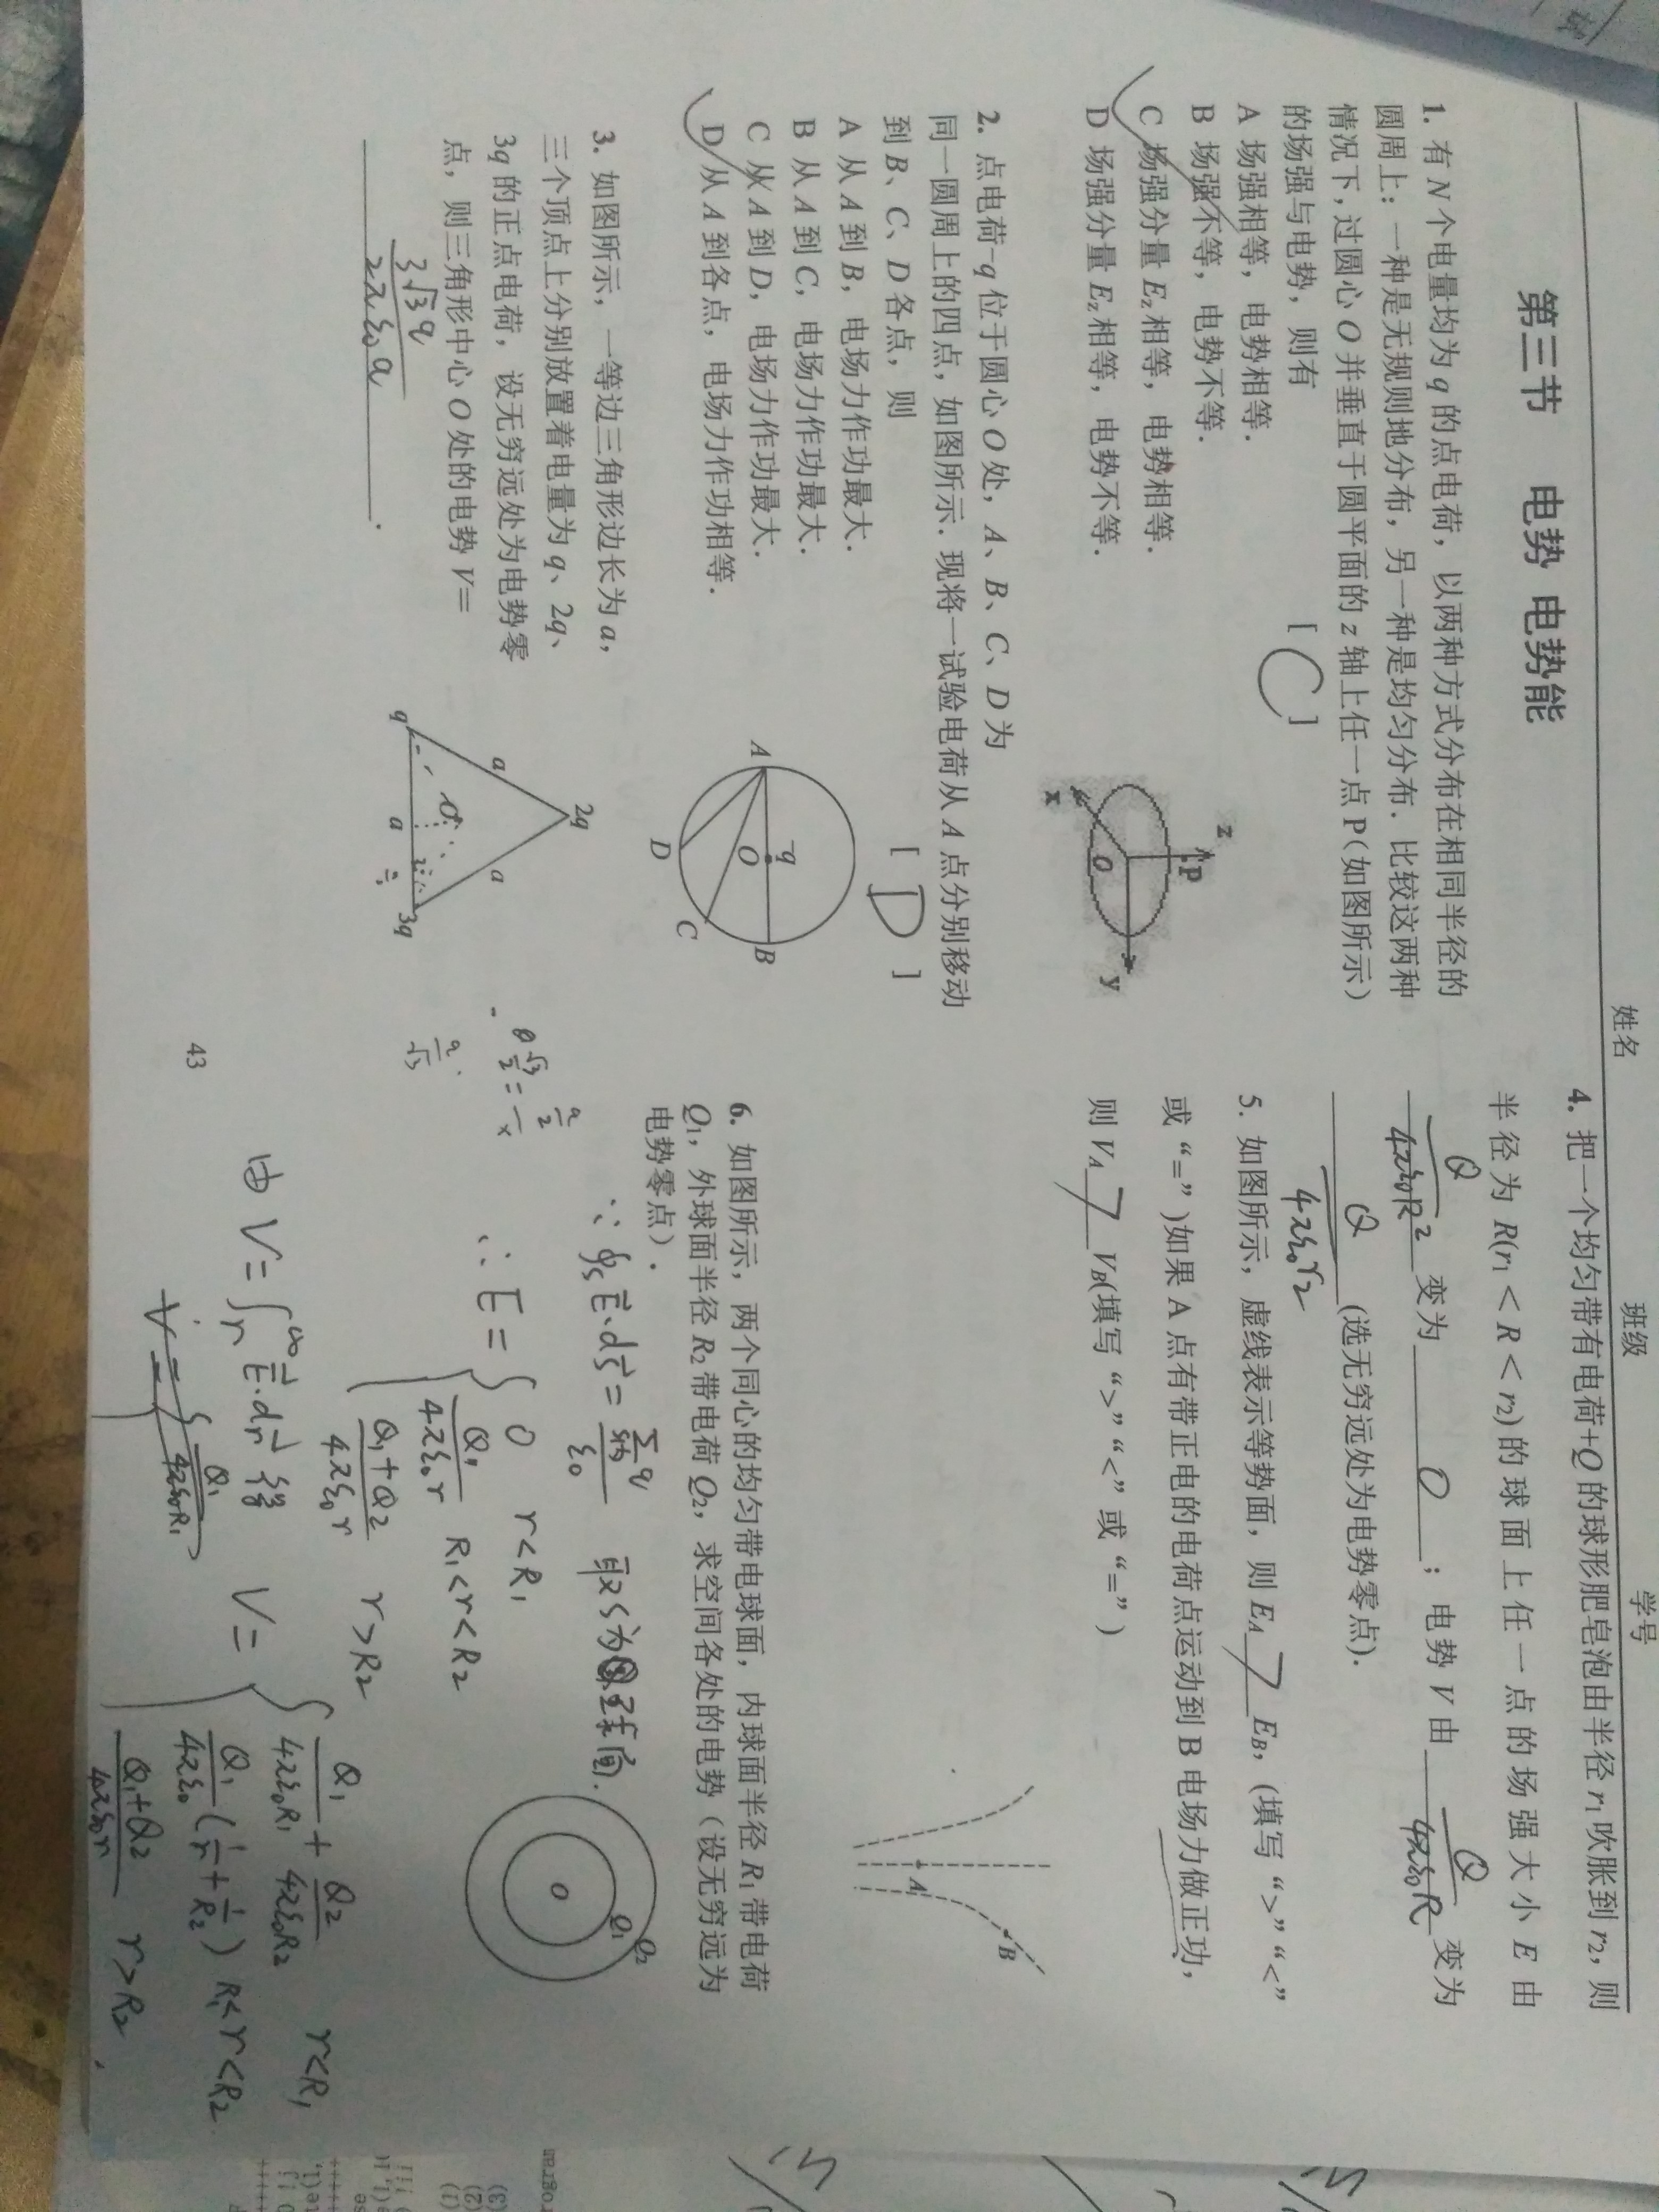 姓名 班级 学号
第三节 电势 电势能
1. 有 N 个电量均为 q 的点电荷，以两种方式分布在相同半径的
圆周上：一种是无规则地分布，另一种是均匀分布．比较这两种
情况下，过圆心 O 并垂直于圆平面的 z 轴上任一点 P（如图所示）
的场强与电势，则有 [ C ]
A 场强相等，电势相等．
B 场强不等，电势不等．
C 场强分量 Ez 相等，电势相等．
D 场强分量 Ez 相等，电势不等．
z
P
O
x
y
2. 点电荷-q 位于圆心 O 处，A、B、C、D 为
同一圆周上的四点，如图所示．现将一试验电荷从 A 点分别移动
到 B、C、D 各点，则 [ D ]
A 从 A 到 B，电场力作功最大．
B 从 A 到 C，电场力作功最大．
C 从 A 到 D，电场力作功最大．
D 从 A 到各点，电场力作功相等．
A
-q
O
B
C
D
3. 如图所示，一等边三角形边长为 a，
三个顶点上分别放置着电量为 q、2q、
3q 的正点电荷，设无穷远处为电势零
点，则三角形中心 O 处的电势 V=
3√3q/2πε0a ．
2q
a
a
O
q
a
3q
√3/2 = a/2 / x
a/√3
43
4. 把一个均匀带有电荷+Q 的球形肥皂泡由半径 r1 吹胀到 r2，则
半径为 R(r1 < R < r2)的球面上任一点的场强大小 E 由
Q/4πε0R² 变为 0 ；电势 V 由 Q/4πε0R 变为
Q/4πε0r2 (选无穷远处为电势零点)．
5. 如图所示，虚线表示等势面，则 EA > EB，(填写“>”“<”
或“=”)如果 A 点有带正电的电荷点运动到 B 电场力做正功，
则 VA > VB(填写“>”“<”或“=”)
A
B
6. 如图所示，两个同心的均匀带电球面，内球面半径 R1 带电荷
Q1，外球面半径 R2 带电荷 Q2，求空间各处的电势（设无穷远为
电势零点）．
O
Q1
Q2
∵ ∮s E·dS = Σq/ε0 取S为 球面.
∴ E = { 0 r<R1
Q1/4πε0r R1<r<R2
Q1+Q2/4πε0r r>R2
由 V = ∫r^∞ E·dr 得 V = { Q1/4πε0R1 + Q2/4πε0R2 r<R1
Q1/4πε0 (1/r + 1/R2) R1<r<R2
Q1+Q2/4πε0r r>R2